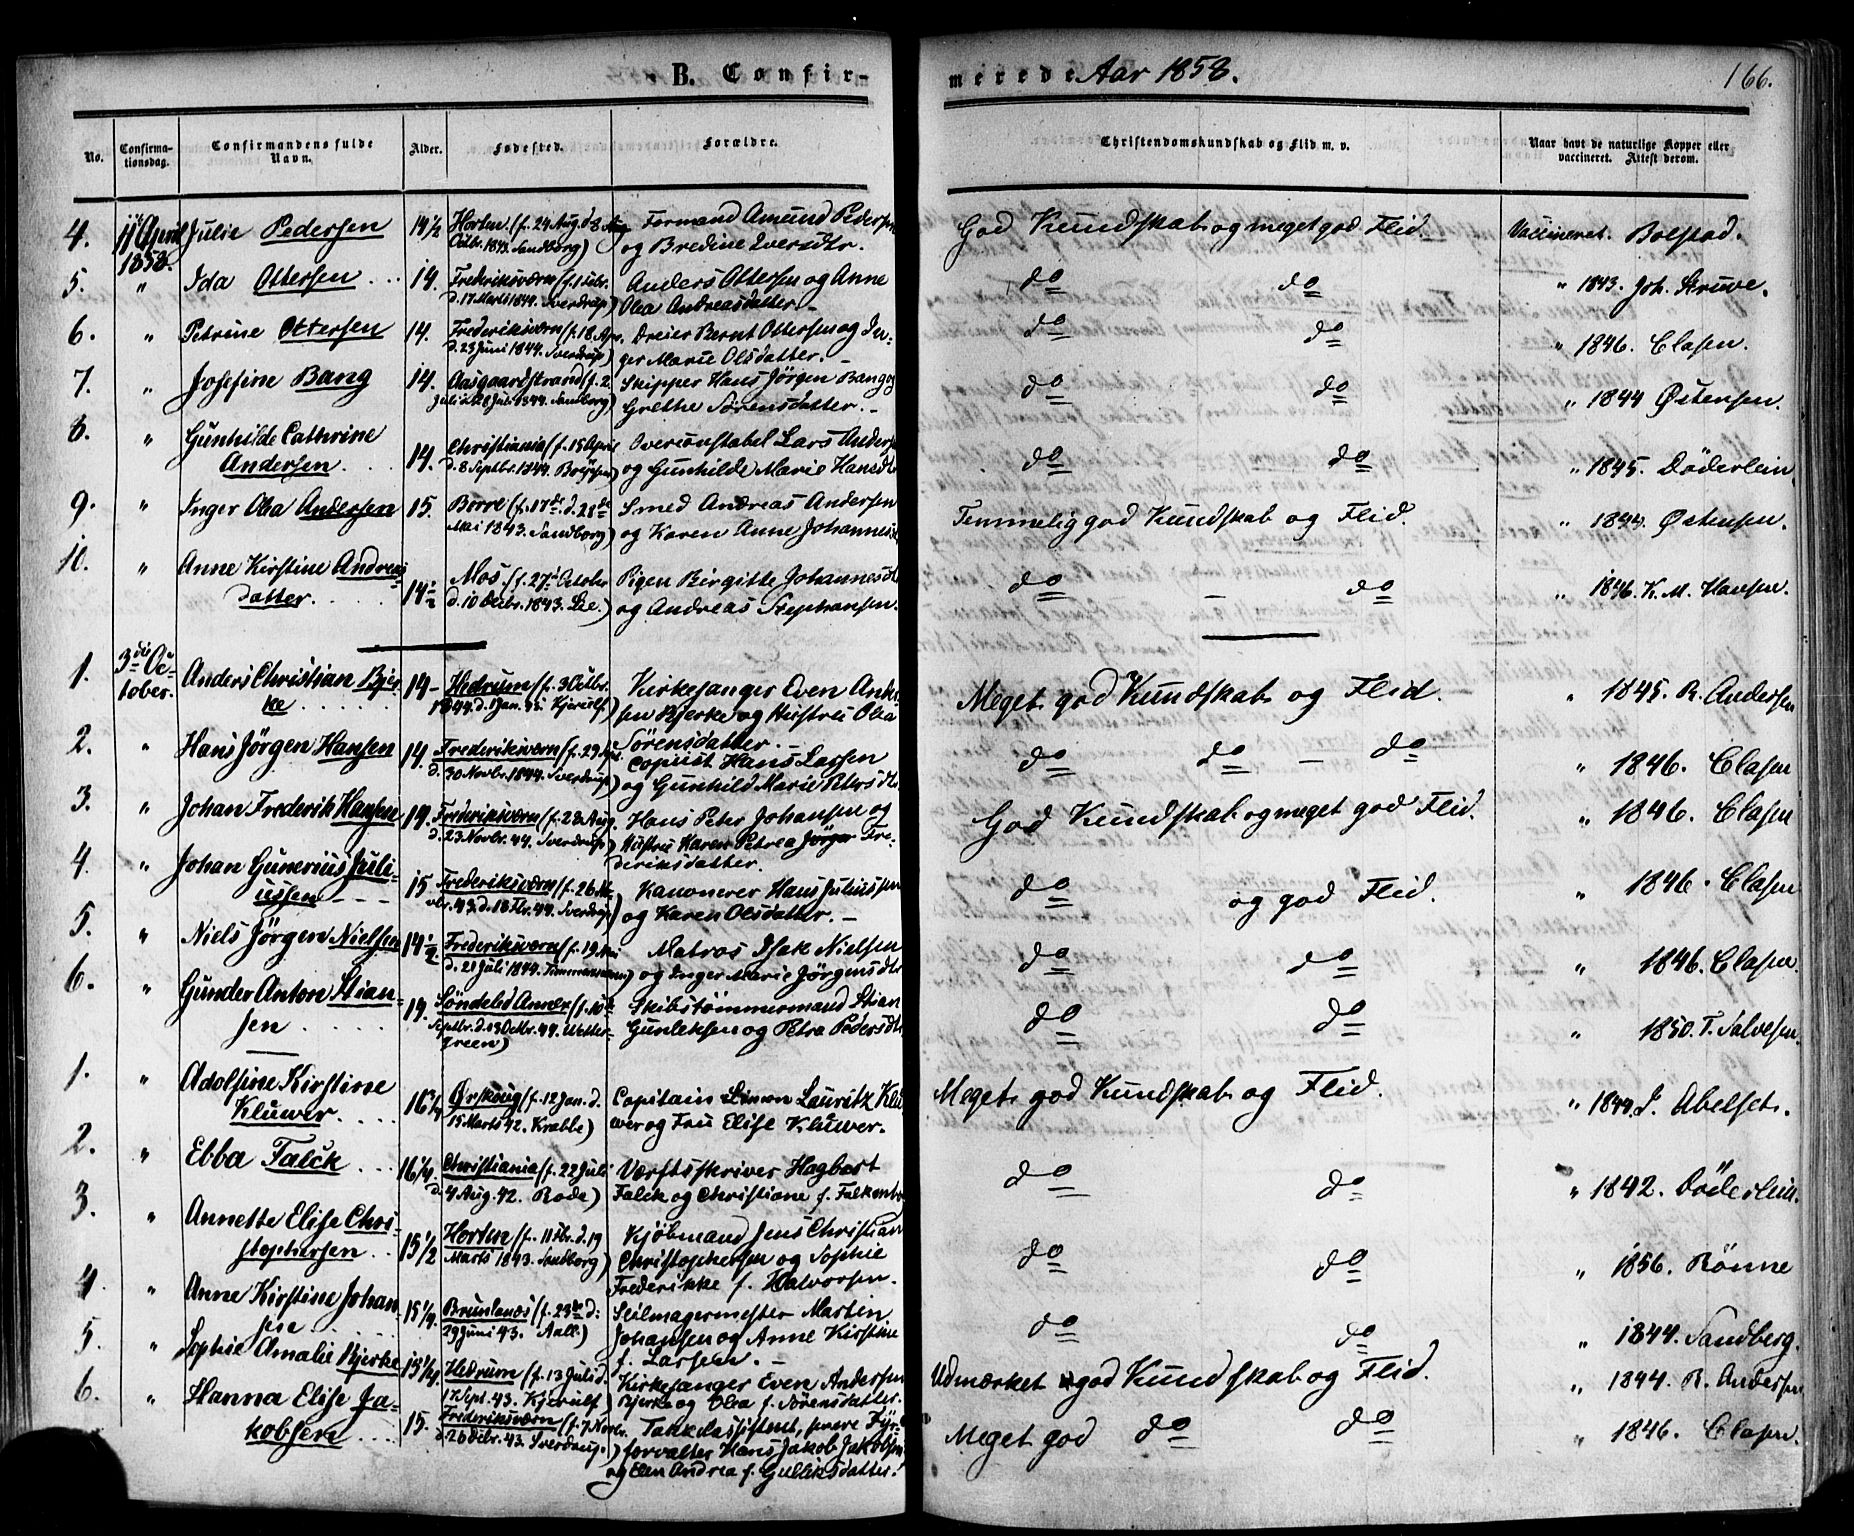 B. Confir-
No. Confirma-tionsdag. Confirmandens fulde Navn. Alder. Fødested. Forældre.
4. 11te April 1858. Julie Pedersen 14 1/2 Horten (f. 24 Aug. d. 8
Octbr. 1843. Sandborg) Formand Amund Pedersen
og Bredine Iversdtr.
5. " Ida Ottersen 14. Frederiksværn (f. 1 Febr.
d. 17 Marts 1844. Sverdrup) Anders Ottersen og Anne
Olea Andreasdatter.
6. " Petrine Ottersen 14. Frederiksværn (f. 18 Apr.
d. 23 Juni 1844. Sverdrup) Dreier Bernt Ottersen og In-
ger Marie Olsdatter.
7. " Josefine Bang 14. Aasgaardstrand (f. 2
Juli d. 28 Juli 1844. Sandborg) Skipper Hans Jörgen Bang og
Grethe Sörensdatter.
8. " Gunhilde Cathrine
Andersen 14. Christiania (f. 15 April
d. 8 Septbr. 1844. Brÿhsen) Overconstabel Lars Anders
og Gunhilde Marie Hansdtr
9. " Inger Olea Andersen 15. Borre (f. 17de d. 28de
Mai 1843. Sandborg) Smed Andreas Andersen
og Karen Anne Johannesd
10. " Anne Kirstine Andreas
datter. 14 1/2 Mos. (f. 27de October
d. 10 Decbr. 1843. Lie.) Pigen Birgitte Johannesdtr
og Andreas Stephansen.
1. 3die Oc-
tober. Anders Christian Bjer-
ke 14 Hedrum (f. 3 Octbr.
1844. d. 1 Jan. 45. Kjerulf) Kirkesanger Even Ander
sen Bjerke og Hustru Olea
Sörensdatter.
2. " Hans Jörgen Hansen 14. Frederiksværn (f. 29
d. 30 Novbr. 1844. Sverdrup) Copiist Hans Larsen
og Gunhild Marie Petersdtr
3. " Johan Frederik Hansen 14. Frederiksværn (f. 28 Aug.
d. 23 Novbr. 44. Sverdrup) Hans Peter Johansen og
Hustru Karen Petrea Jörgen Fre-
deriksdatter.
4. " Johan Gunerius Juli-
ussen 15 Frederiksværn (f. 26
vbr. 43. d. 18 Fbr. 44. Sverdrup) Kanonerer Hans Juliussen
og Karen Olsdatter.
5. " Niels Jörgen Nielsen 14 1/2 Frederiksværn (f. 19 Mai
d. 21 Juli 1844. Timmermann) Matros Isak Nielsen
og Inger Marie Jörgensdtr
6. " Gunder Anton Stian-
sen 14. Söndeled Annex (f. 10de
Septbr. d. 13 Octbr. 44. Wetter-
green) Skibstömmermand Stian
Gunleksen og Petra Pedersdtr
1. " Adolfine Kirstine
Kluwer 16 3/4 Ørskoug (f. 12 Jan. d.
15 Marts 42. Krabbe) Capitain Simon Lauritz Klu
wer og Fru Elise Kluwer.
2. " Ebba Falck 16 1/4 Christiania (f. 22 Juli
d. 4 Aug. 42. Rode) Værftsskriver Hagbart
Falck og Christiane f. Falkenb
3. " Annette Elise Chri-
stophersen 15 1/2 Horten (f. 11 Fbr. d. 19
Marts 1843. Sandborg) Kjöbmand Jens Christian
Christophersen og Sophie
Frederikke f. Halvorsen.
4. " Anne Kirstine Johan-
sen 15 1/4 Brunlanæs (f. 23de d.
29 Juni 43. Aall.) Seilmagermester Martin
Johansen og Anne Kirstine
f. Larsen.
5. " Sophie Amalie Bjerke 15 1/4 Hedrum (f. 13 Juli d.
17 Sept. 43. Kjerulf) Kirkesanger Even Andersen
Bjerke og Olea f. Sörensdatter.
6. " Hanna Elise Ja-
kobsen 15. Frederiksværn (f. 7 Novbr.
d. 26 Dcbr. 43. Sverdrup.) Takkelassistent, senere Fÿr-
forvalter Hans Jakob Jakobsen
og Elen Andrea f. Gulliksdatter.
merede Aar 1858. 166.
Christendomskundskab og Flid m. v. Naar havt de naturlige Kopper eller vaccineret. Attest derom.
God Kundskab og meget god Flid. Vaccineret. Bolstad.
do do " 1843. Joh. Struve.
do do " 1846. Clasen.
do do " 1844 Østensen.
do do " 1845. Döderlein
Temmelig god Kundskab og Flid. " 1844. Østensen.
do - do " 1846. K. M. Hansen.
Meget god Kundskab og Flid. " 1845. R. Andersen
do do - do " 1846. Clasen
God Kundskab og meget god Flid. " 1846. Clasen
do og god Flid. " 1846. Clasen
do do " 1846. Clasen.
do do " 1850. T. Salvesen.
Meget god Kundskab og Flid. " 1844. J. Abelset.
do do " 1842. Döderlein.
do do " 1856. Rönne
do do " 1844. Sandberg.
Udmærket god Kundskab og Flid. " 1844. R. Andersen
Meget god do do " 1846. Clasen.